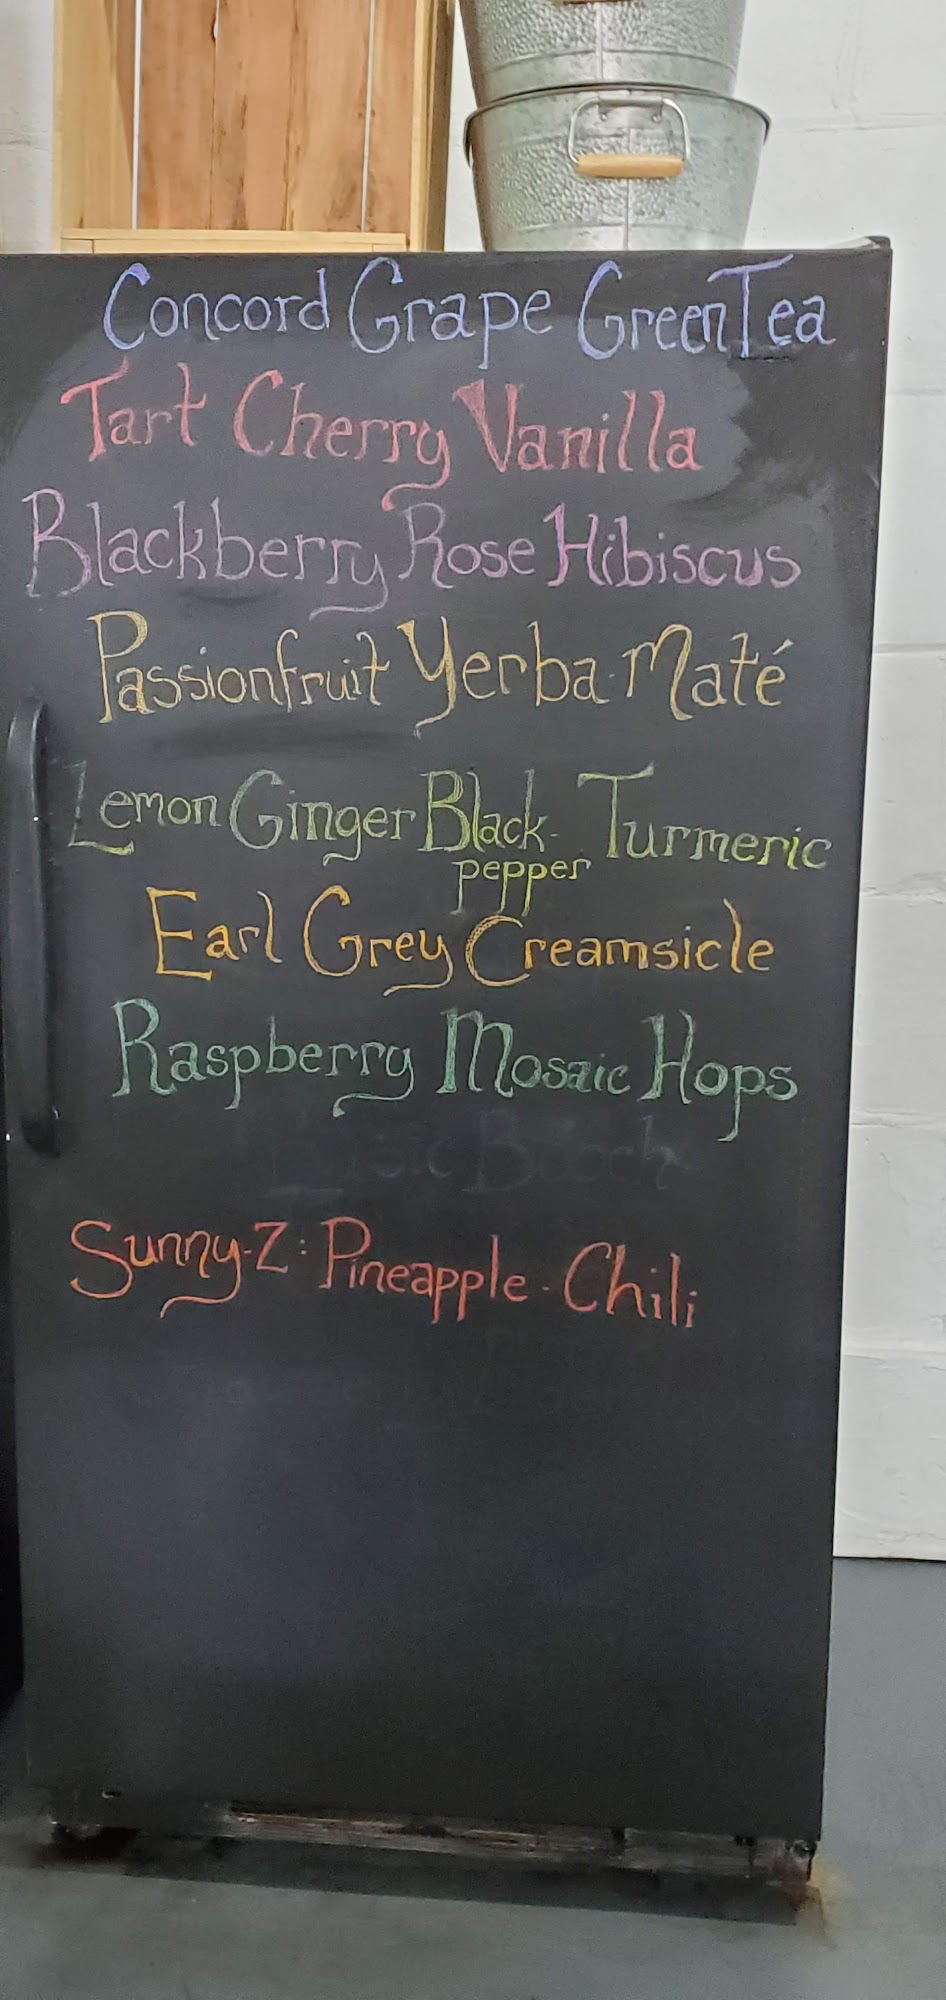 Concord Grape Green Tea
Tart Cherry Vanilla
Blackberry Rose Hibiscus
Passionfruit Yerba-Maté
Lemon Ginger Black- Turmeric
pepper
Earl Grey Creamsicle
Raspberry Mosaic Hops
Sunny-Z: Pineapple-Chili